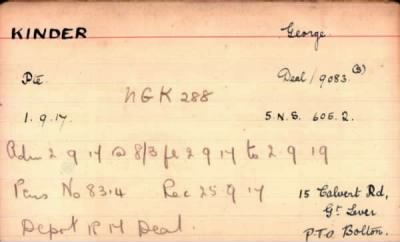 KINDER George
Pte Deal/9083.(S)
NGK 288
1.9.17. S.N.S. 605.2.
Adm 2 9 17 @ 8/3 fr 2 9 17 to 2 9 19
Pens No 8314 Rec 25 9 17 15 Calvert Rd,
Gt Lever
Depot R M Deal. P.T.O Bolton.